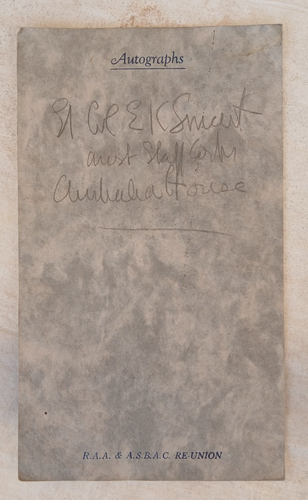 Autographs
Lt Col E K Smart
Aust Staff Corps
Australia House
R.A.A. & A.S.B.A.C. RE-UNION